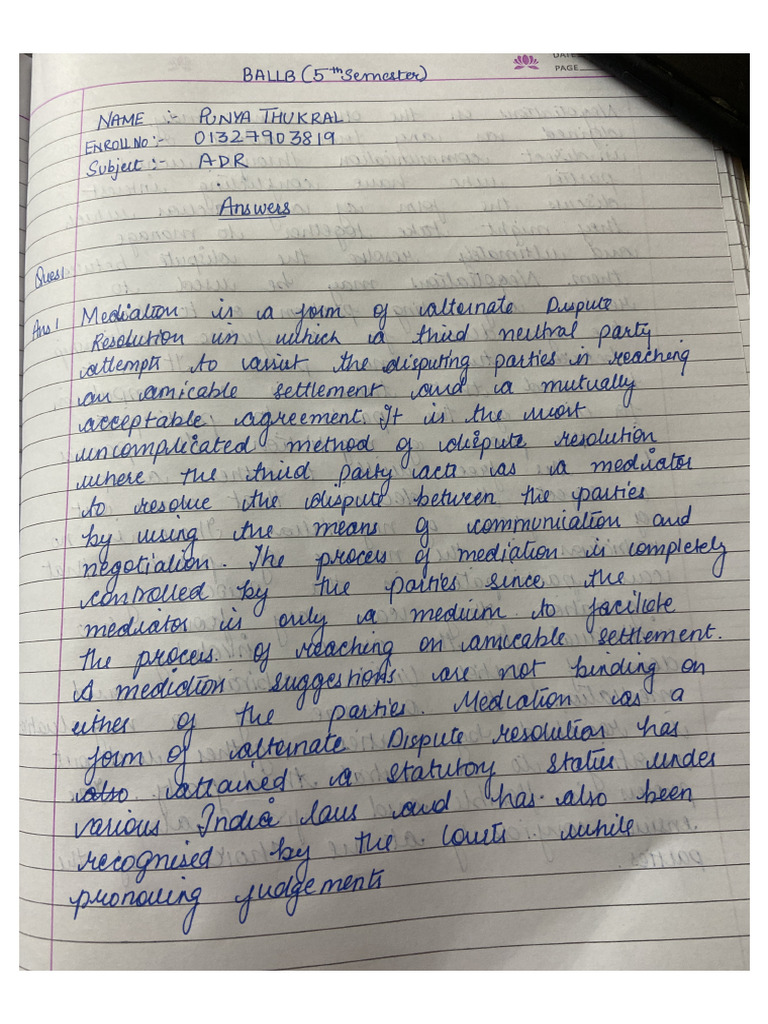 DATE
PAGE
BALLB (5th Semester)
NAME :- PUNYA THUKRAL
ENROLL NO :- 01327903819
Subject :- ADR
Answers
Ques1
Ans.1 Mediation is a form of alternate Dispute
Resolution in which a third neutral party
attempts to assist the disputing parties in reaching
an amicable settlement and a mutually
acceptable agreement. It is the most
uncomplicated method of dispute resolution
where the third party acts as a mediator
to resolve the dispute between the parties
by using the means of communication and
negotiation. The process of mediation is completely
controlled by the parties since the
mediator is only a medium to faciliate
the process of reaching on amicable settlement.
A mediation suggestions are not binding on
either of the parties. Mediation as a
form of alternate Dispute resolution has
also attained a statutory status under
various India laws and has also been
recognised by the Courts while
pronouing judgements